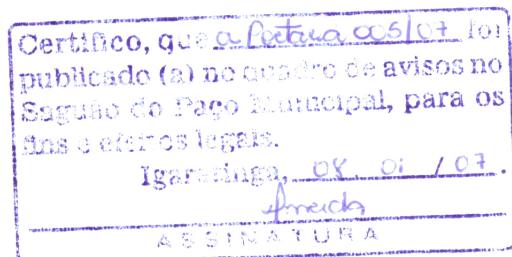 Certifico, que a Portaria 005/07 foi
publicado (a) no quadro de avisos no
Saguão do Paço Municipal, para os
fins e efeitos legais.
Igaratinga, 08 01 / 07.
Almeida
ASSINATURA